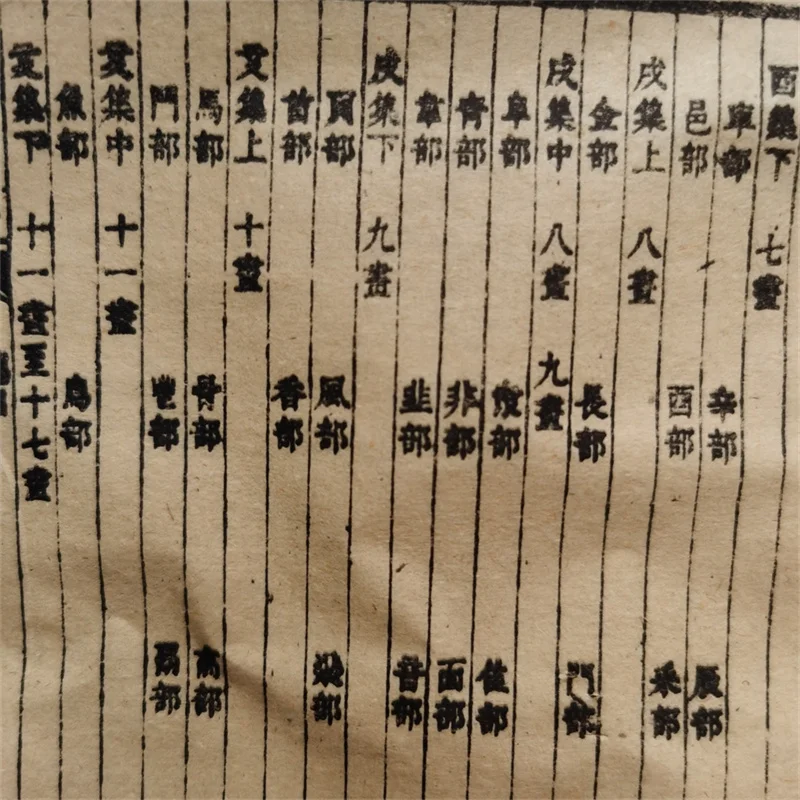 酉集下 七畫
車部 辛部 辰部
邑部 酉部 釆部
戌集上 八畫
金部 長部 門部
戌集中 八畫 九畫
阜部 隶部 隹部
青部 非部 面部
韋部 韭部 音部
戌集下 九畫
頁部 風部 飛部
首部 香部
亥集上 十畫
馬部 骨部 高部
鬥部 鬯部 鬲部
亥集中 十一畫
魚部 鳥部
亥集下 十一畫至十七畫